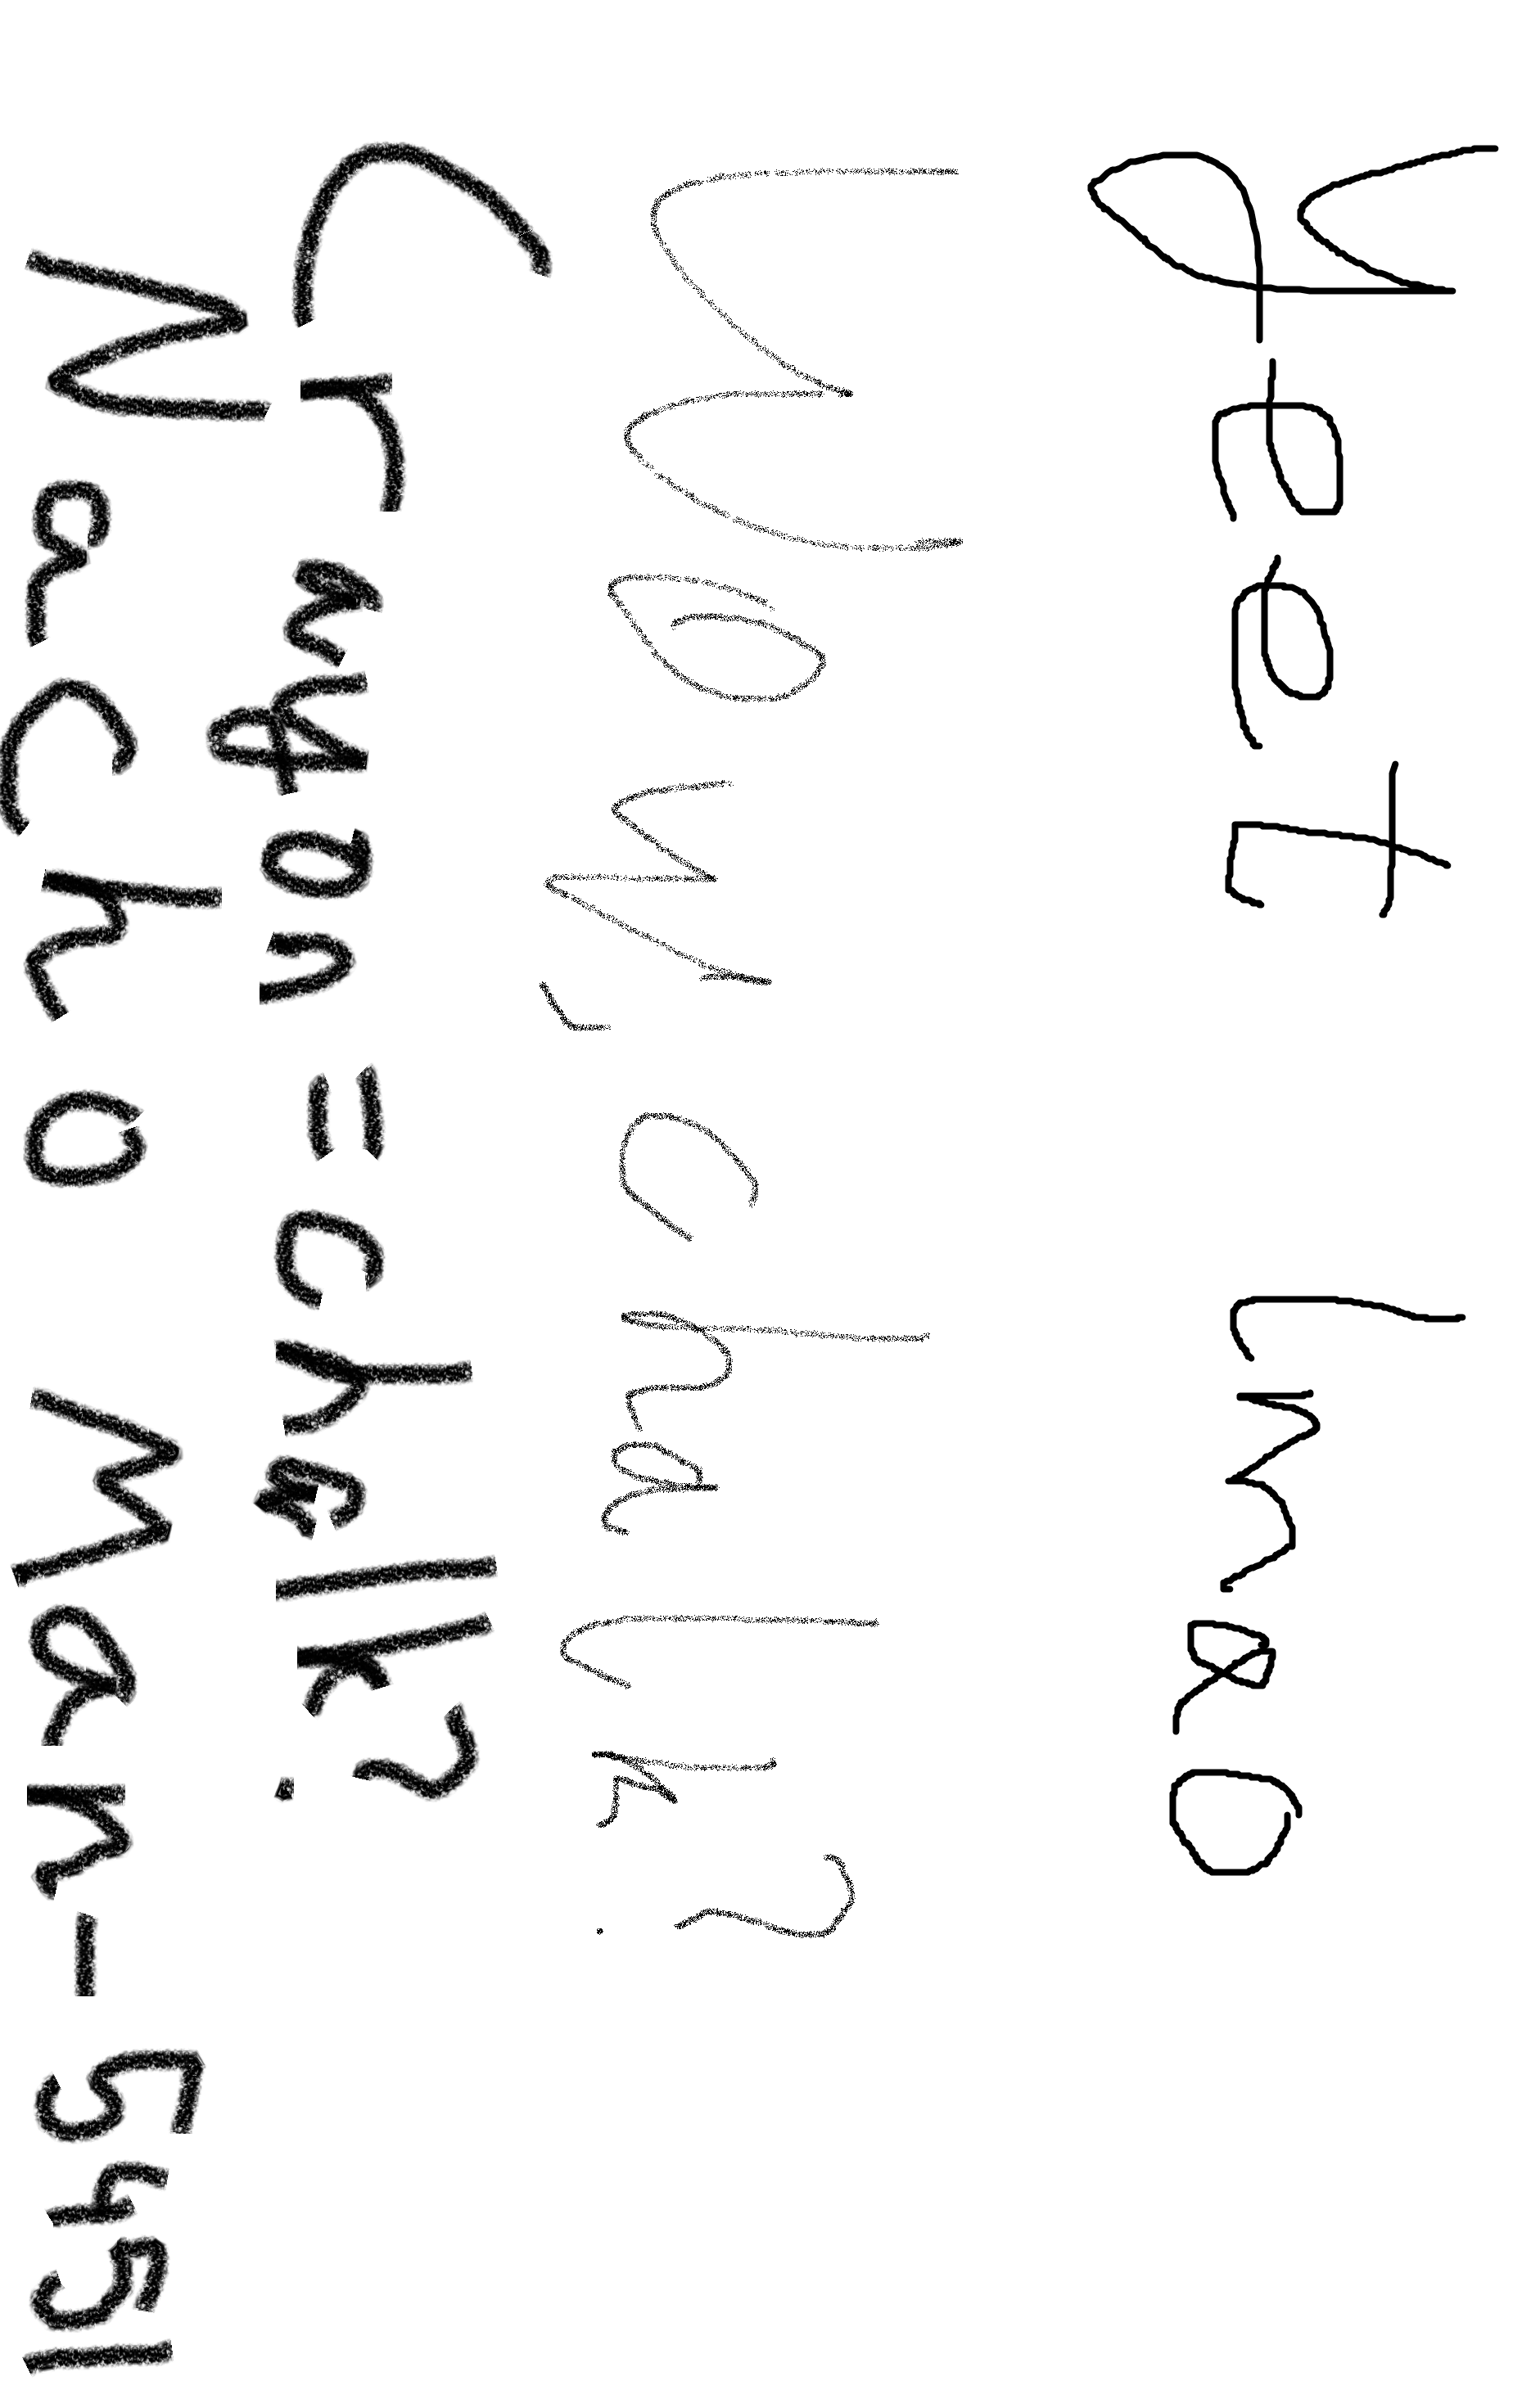 Yeet lmao
Wew, chalk?
Crayon =chalk?
Nacho Man-5451